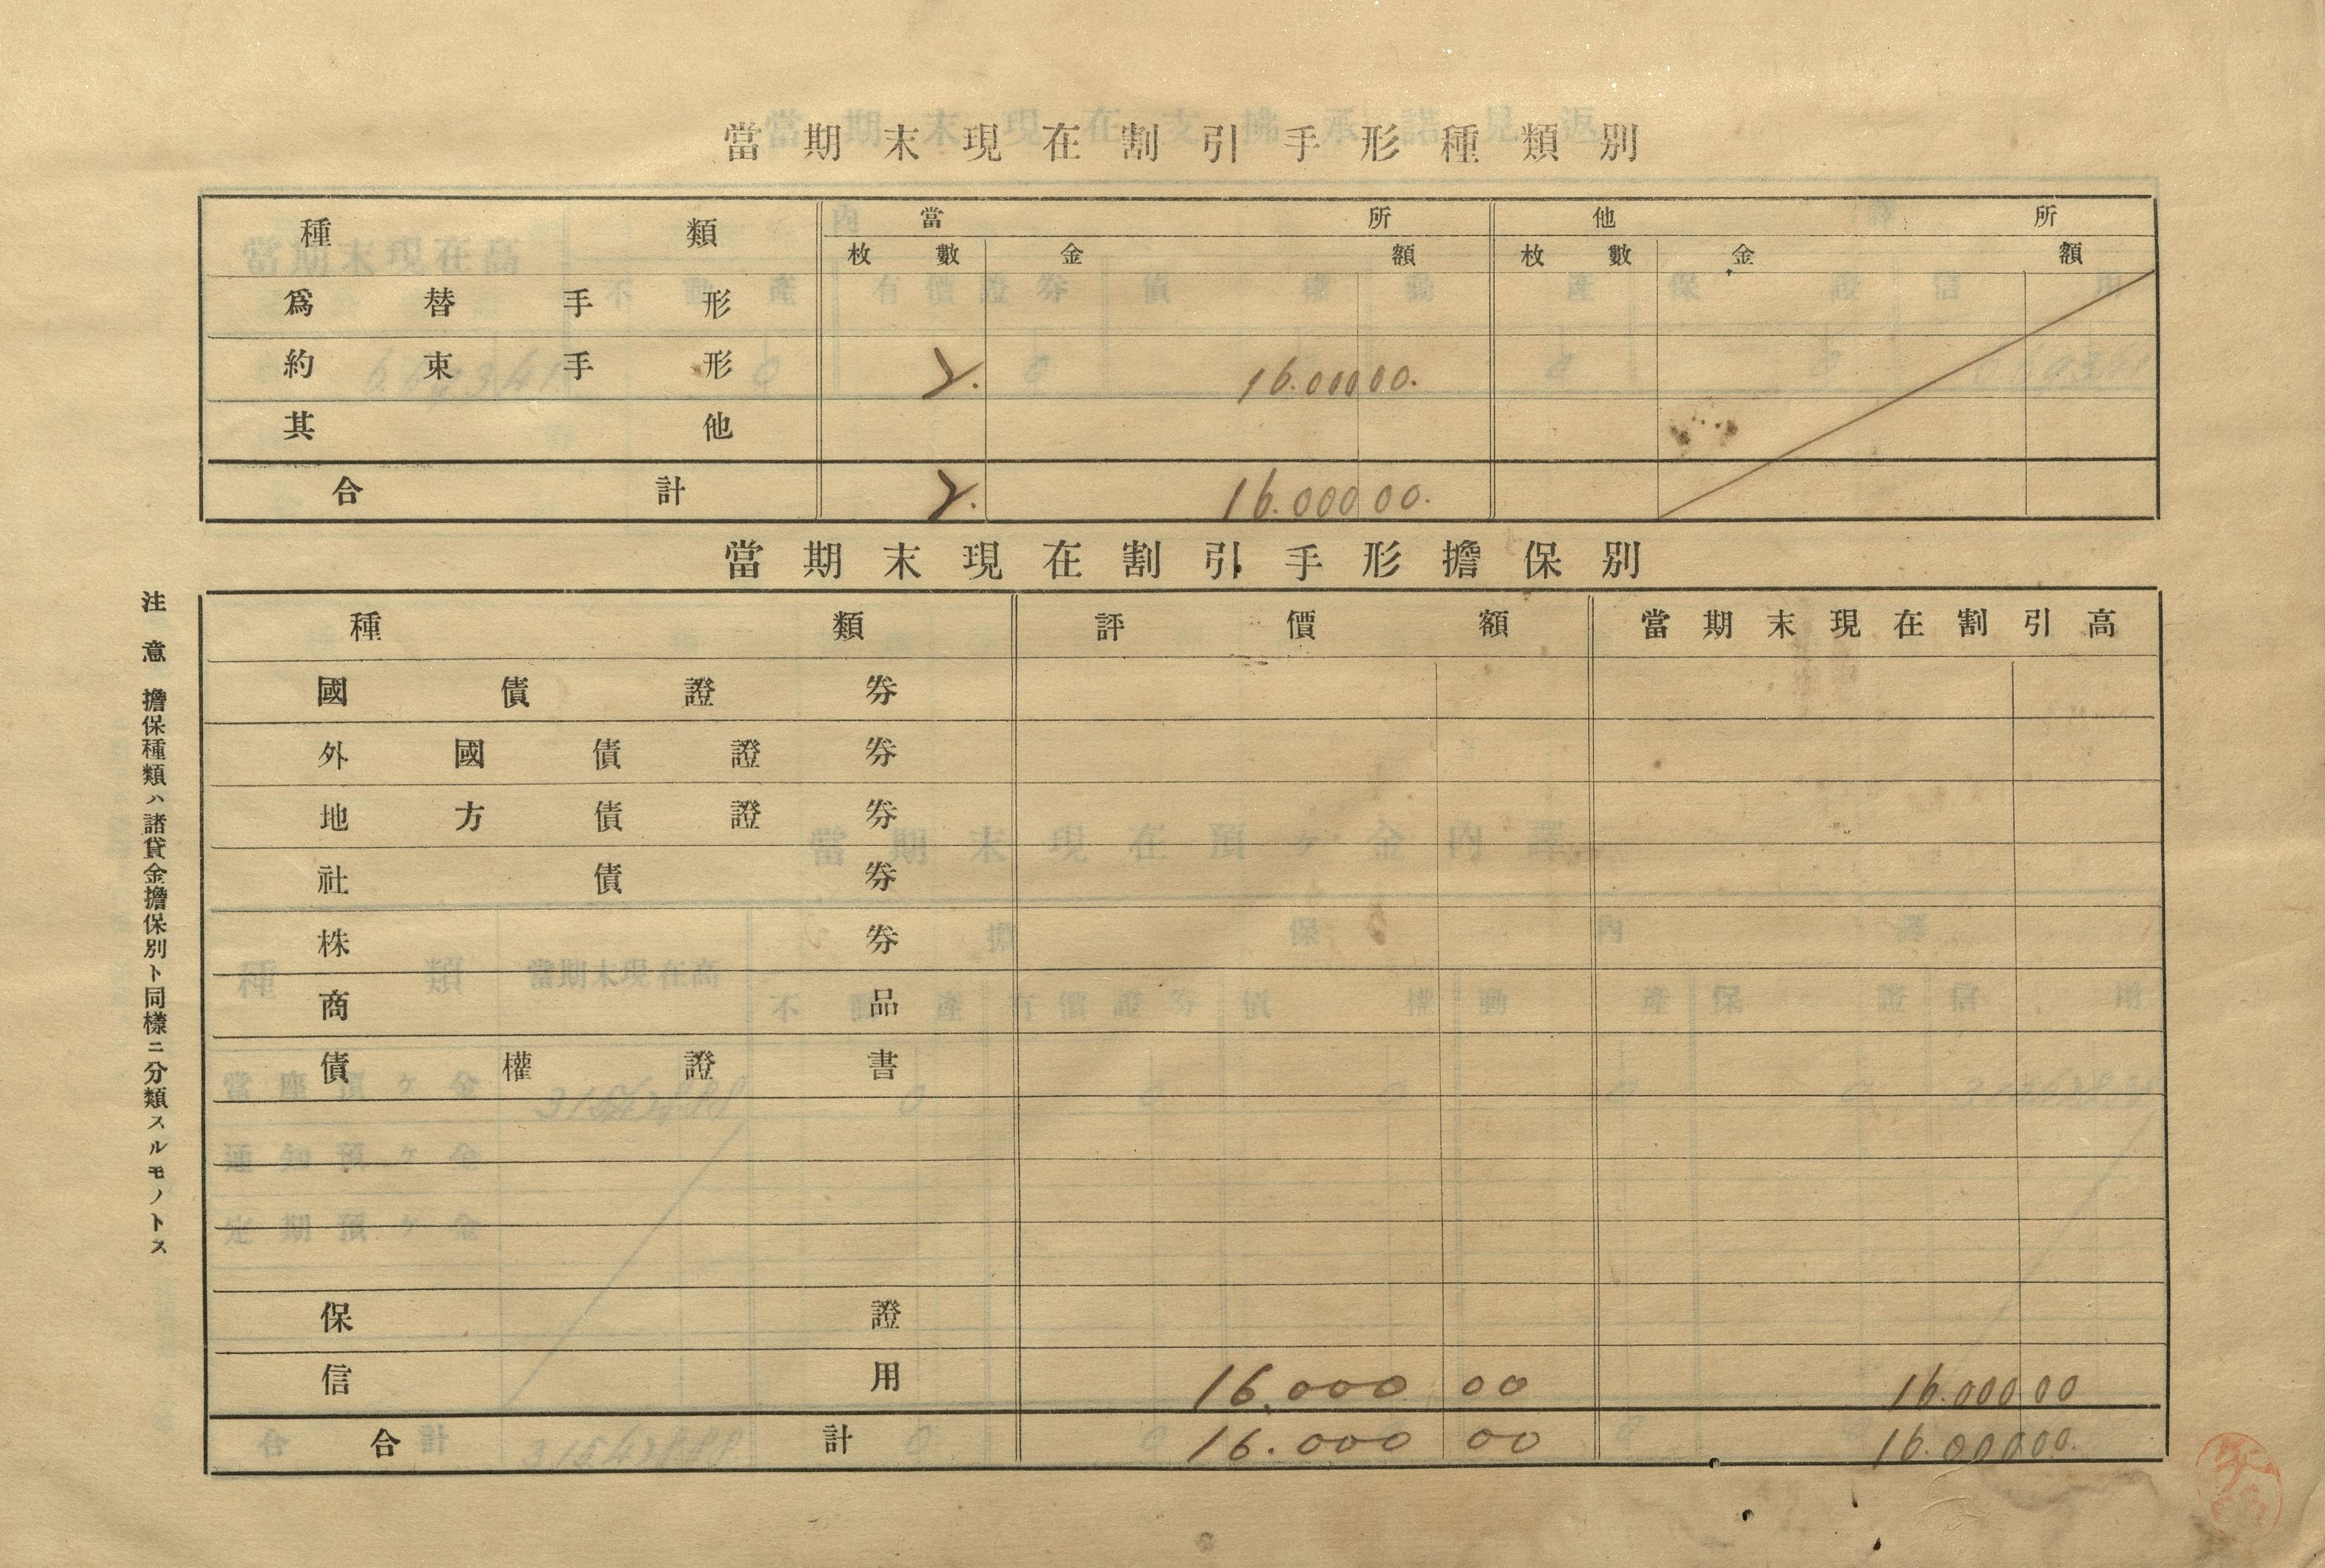 當期末現在割引手形種類別
種類 當所 他所
枚數 金額 枚數 金額
爲替手形
約束手形 2. 16.000 00.
其他
合計 2. 16.000 00.
當期末現在割引手形擔保別
種類 評價額 當期末現在割引高
國債證券
外國債證券
地方債證券
社債券
株券
商品
債權證書
保證
信用 16.000 00 16.000 00
合計 16.000 00 16.000 00.
注意 擔保種類ハ諸貸金擔保別ト同樣ニ分類スルモノトス